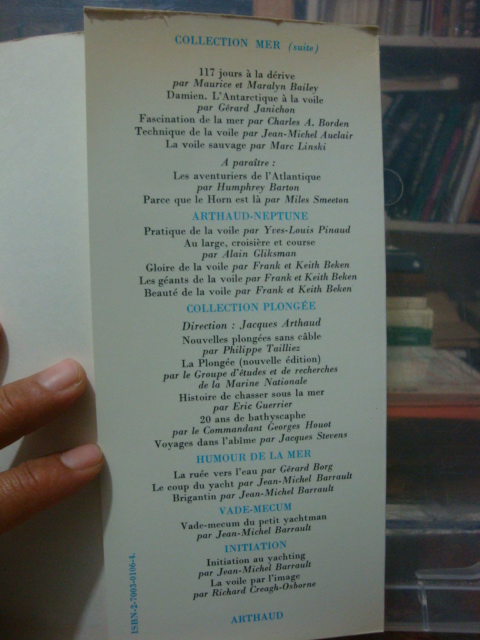 COLLECTION MER (suite)
117 jours à la dérive
par Maurice et Maralyn Bailey
Damien. L'Antarctique à la voile
par Gérard Janichon
Fascination de la mer par Charles A. Borden
Technique de la voile par Jean-Michel Auclair
La voile sauvage par Marc Linski
A paraître :
Les aventuriers de l'Atlantique
par Humphrey Barton
Parce que le Horn est là par Miles Smeeton
ARTHAUD-NEPTUNE
Pratique de la voile par Yves-Louis Pinaud
Au large, croisière et course
par Alain Gliksman
Gloire de la voile par Frank et Keith Beken
Les géants de la voile par Frank et Keith Beken
Beauté de la voile par Frank et Keith Beken
COLLECTION PLONGÉE
Direction : Jacques Arthaud
Nouvelles plongées sans câble
par Philippe Tailliez
La Plongée (nouvelle édition)
par le Groupe d'études et de recherches
de la Marine Nationale
Histoire de chasser sous la mer
par Eric Guerrier
20 ans de bathyscaphe
par le Commandant Georges Houot
Voyages dans l'abîme par Jacques Stevens
HUMOUR DE LA MER
La ruée vers l'eau par Gérard Borg
Le coup du yacht par Jean-Michel Barrault
Brigantin par Jean-Michel Barrault
VADE-MECUM
Vade-mecum du petit yachtman
par Jean-Michel Barrault
INITIATION
Initiation au yachting
par Jean-Michel Barrault
La voile par l'image
par Richard Creagh-Osborne
ARTHAUD
ISBN-2-7003-0106-4.